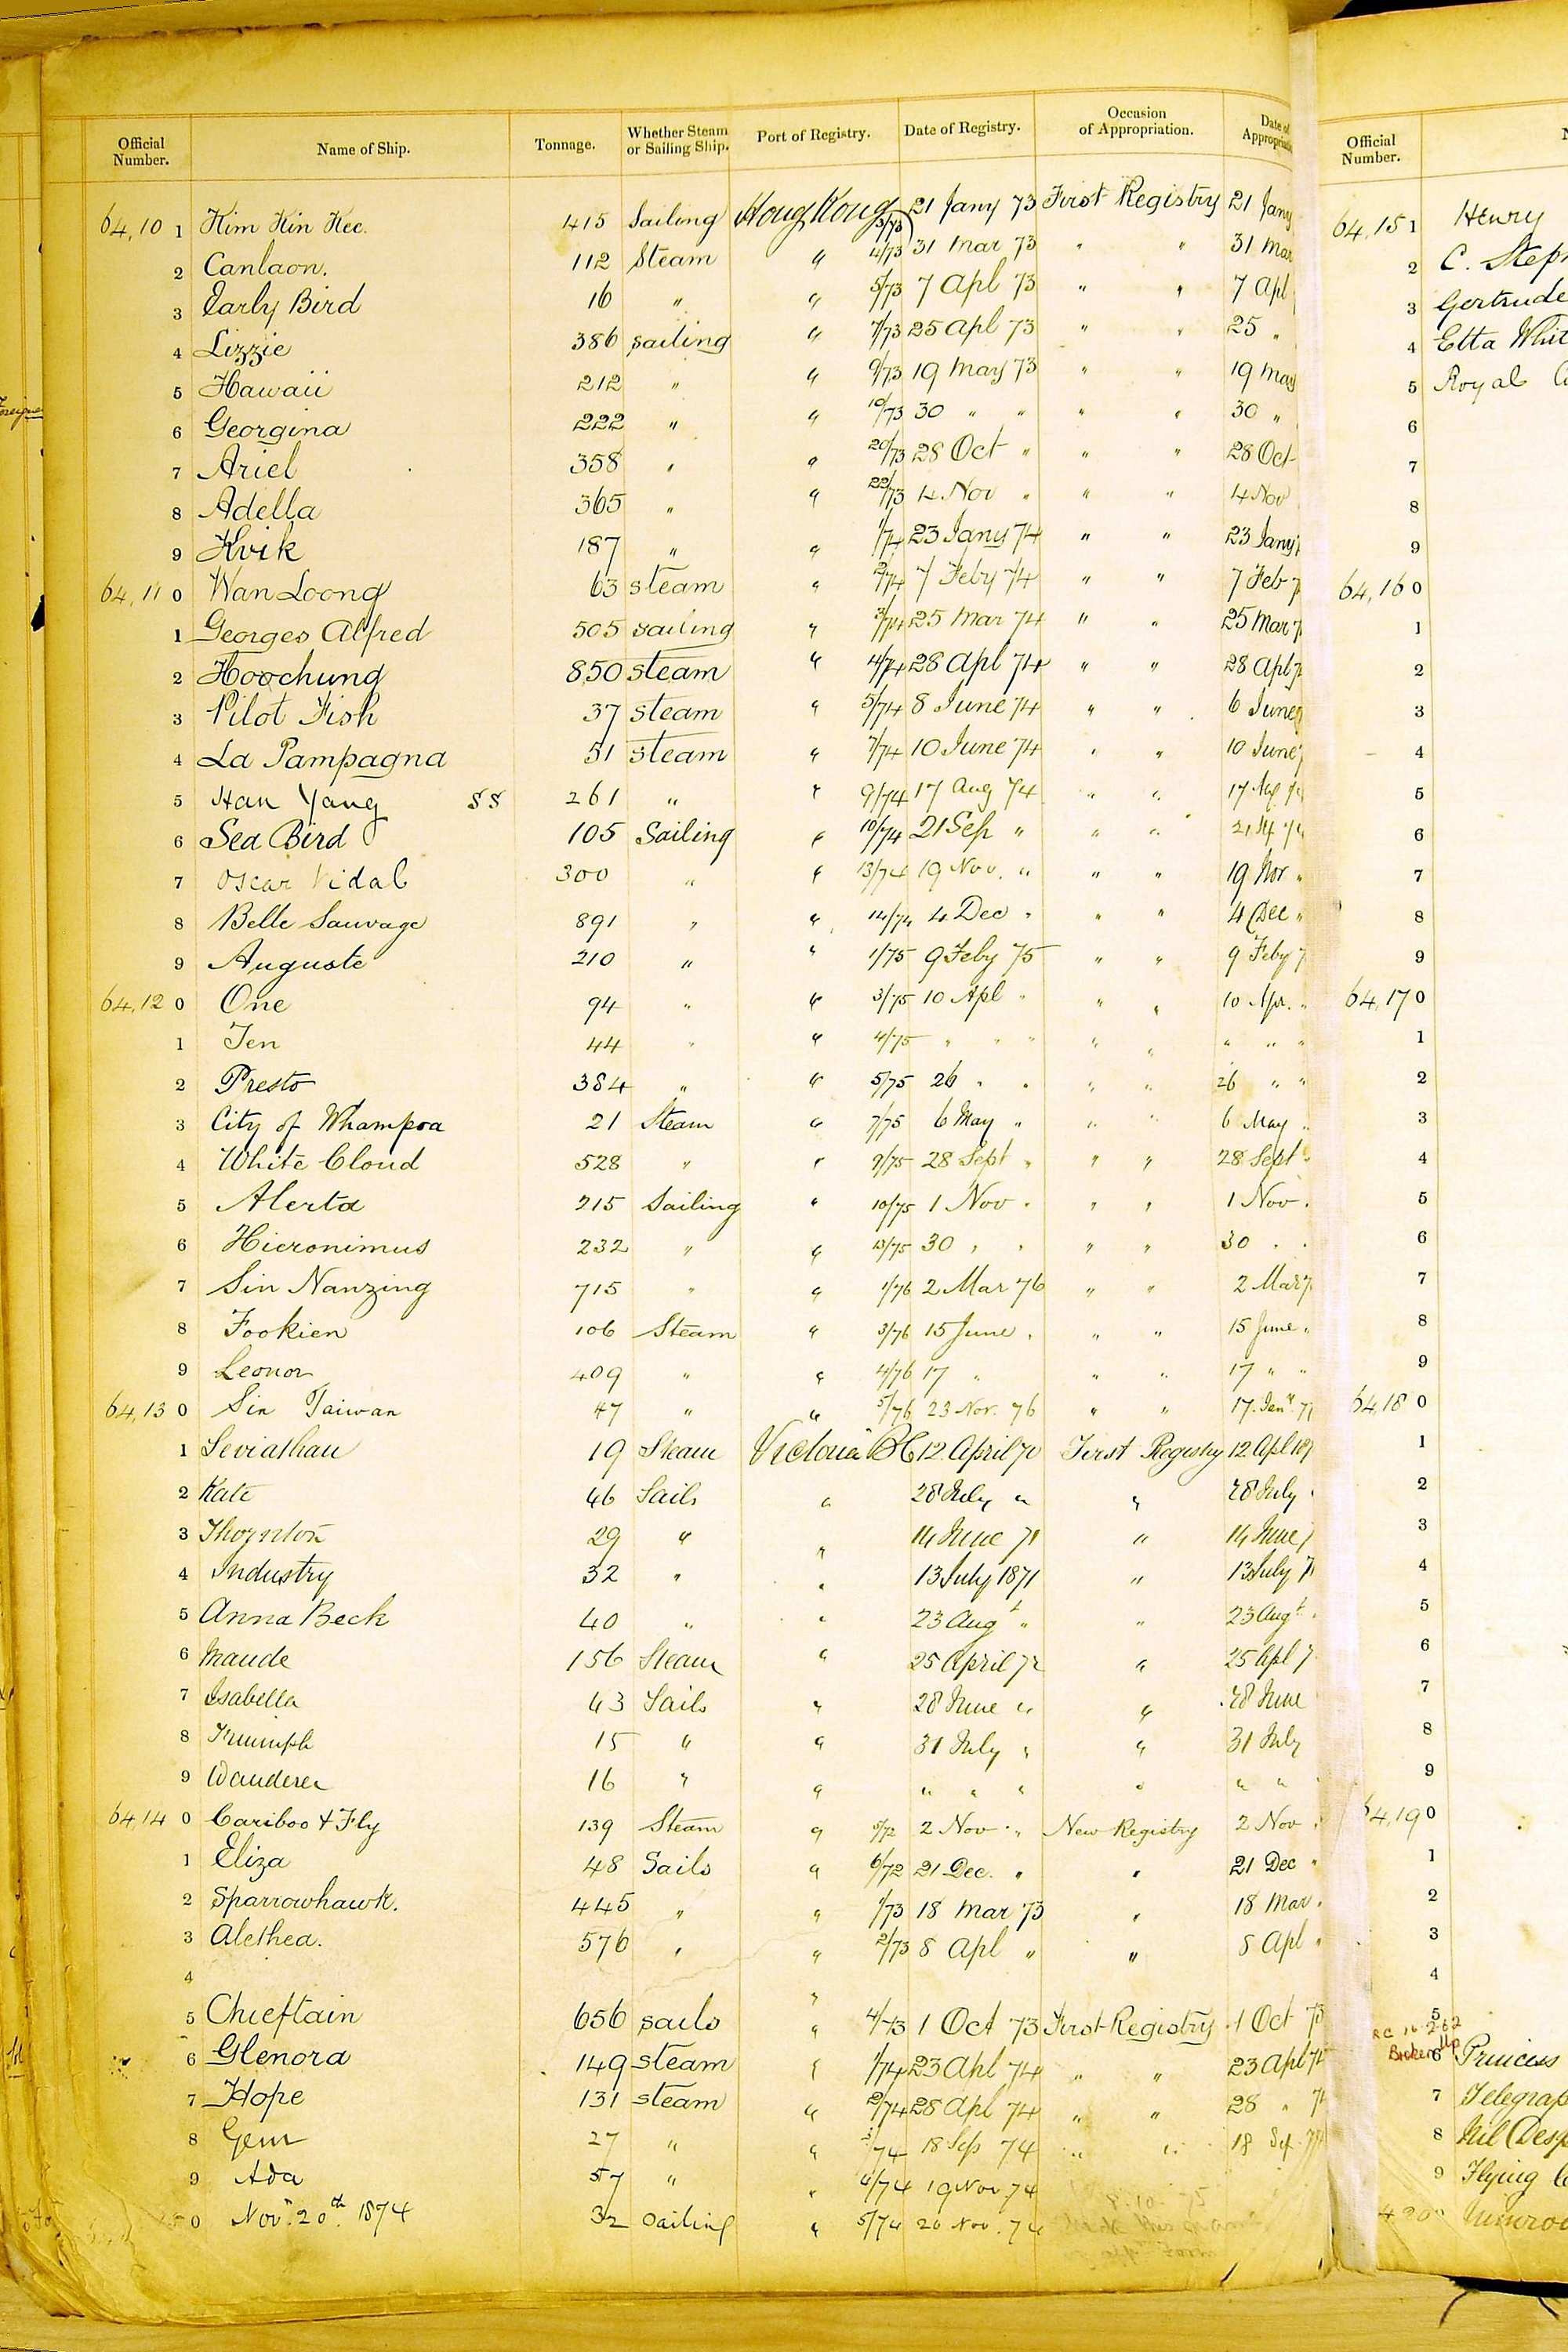 Official Number. Name of Ship. Tonnage. Whether Steam or Sailing Ship. Port of Registry. Date of Registry. Occasion of Appropriation. Date of
64,10 1 Kim Kin Kee. 415 Sailing Hong Kong 3/73 21 Jany 73 First Registry 21 Jany
2 Canlaon. 112 Steam " 4/73 31 Mar 73 " " 31 Mar
3 Early Bird 16 " " 5/73 7 Apl 73 " " 7 Apl
4 Lizzie 386 sailing " 7/73 25 Apl 73 " " 25 "
5 Hawaii 212 " " 9/73 19 May 73 " " 19 May
6 Georgina 222 " " 10/73 30 " " " " 30 "
7 Ariel 358 " " 20/73 28 Oct " " " 28 Oct
8 Adella 365 " " 22/73 14 Nov " " " 14 Nov
9 Kvik 187 " " 1/74 23 Jany 74 " " 23 Jany
64,11 0 Wan Loong 63 steam " 2/74 7 Feby 74 " " 7 Feb 7
1 Georges Alfred 505 sailing " 3/74 25 Mar 74 " " 25 Mar 7
2 Hoochung 850 steam " 4/74 28 Apl 74 " " 28 Apl 7
3 Pilot Fish 37 steam " 5/74 8 June 74 " " 6 June
4 La Pampagna 51 steam " 7/74 10 June 74 " " 10 June
5 Han Yang SS 261 " " 9/74 17 Aug 74 " " 17 Aug
6 Sea Bird 105 Sailing " 10/74 21 Sep " " " 21
7 Oscar Vidal 300 " " 13/74 19 Nov. " " " 19 Nov "
8 Belle Sauvage 891 " " 14/74 4 Dec " " " 4 Dec "
9 Auguste 210 " " 1/75 9 Feby 75 " " 9 Feby 7
64,12 0 One 94 " " 3/75 10 Apl " " " 10 Apr. "
1 Ten 44 " " 4/75 " " " " " " " "
2 Presto 384 " " 5/75 26 " " " " 26 " "
3 City of Whampoa 21 Steam " 7/75 6 May " " " 6 May "
4 White Cloud 528 " " 9/75 28 Sept " " " 28 Sept "
5 Alerta 215 Sailing " 10/75 1 Nov " " " 1 Nov "
6 Hieronimus 232 " " 13/75 30 " " " " 30 " "
7 Sin Nanzing 715 " " 1/76 2 Mar 76 " " 2 Mar 7
8 Fookien 106 Steam " 3/76 15 June " " " 15 June "
9 Leonor 409 " " 4/76 17 " " " 17 " "
64,13 0 Sin Taiwan 47 " " 5/76 23 Nov. 76 " " 17 Jany 77
1 Leviathan 19 Steam Victoria BC 12 April 70 First Registry 12 Apl 187
2 Kate 46 Sails " 28 July " " 28 July "
3 Thornton 29 " " 14 June 71 " 14 June 7
4 Industry 32 " " 13 July 1871 " 13 July 7
5 Anna Beck 40 " " 23 Augt " " 23 Augt "
6 Maude 156 Steam " 25 April 72 " 25 Apl 7
7 Isabella 43 Sails " 28 June " " 28 June
8 Triumph 15 " " 31 July " " 31 July
9 Wanderer 16 " " " " " " " "
64,14 0 Cariboo & Fly 139 Steam " 5/72 2 Nov " New Registry 2 Nov
1 Eliza 48 Sails " 6/72 21 Dec. " " 21 Dec "
2 Sparrowhawk. 445 " " 1/73 18 Mar 73 " 18 Mar.
3 Alethea. 576 " " 2/73 8 Apl " " 8 Apl "
4 "
5 Chieftain 656 sails " 4/73 1 Oct 73 First Registry 1 Oct 73
6 Glenora 149 steam " 1/74 23 Apl 74 " " 23 Apl 74
7 Hope 131 steam " 2/74 28 Apl 74 " " 28 " 74
8 Gem 27 " " 3/74 18 Sep 74 " " 18 Sep
9 Ada 57 " " 4/74 19 Nov 74
0 Novr. 20th 1874 32 Sailing " 5/74 20 Nov. 74
Official Number.
64,15 1 Henry
2 C. Step
3 Gertrude
4 Etta Whit
5 Royal
6
7
8
9
64,16 0
1
2
3
4
5
6
7
8
9
64,17 0
1
2
3
4
5
6
7
8
9
64,18 0
1
2
3
4
5
6
7
8
9
64,19 0
1
2
3
4
5
Broken Up
6 Princess
7 Telegrap
8 Nil Desp
9 Flying
Munro